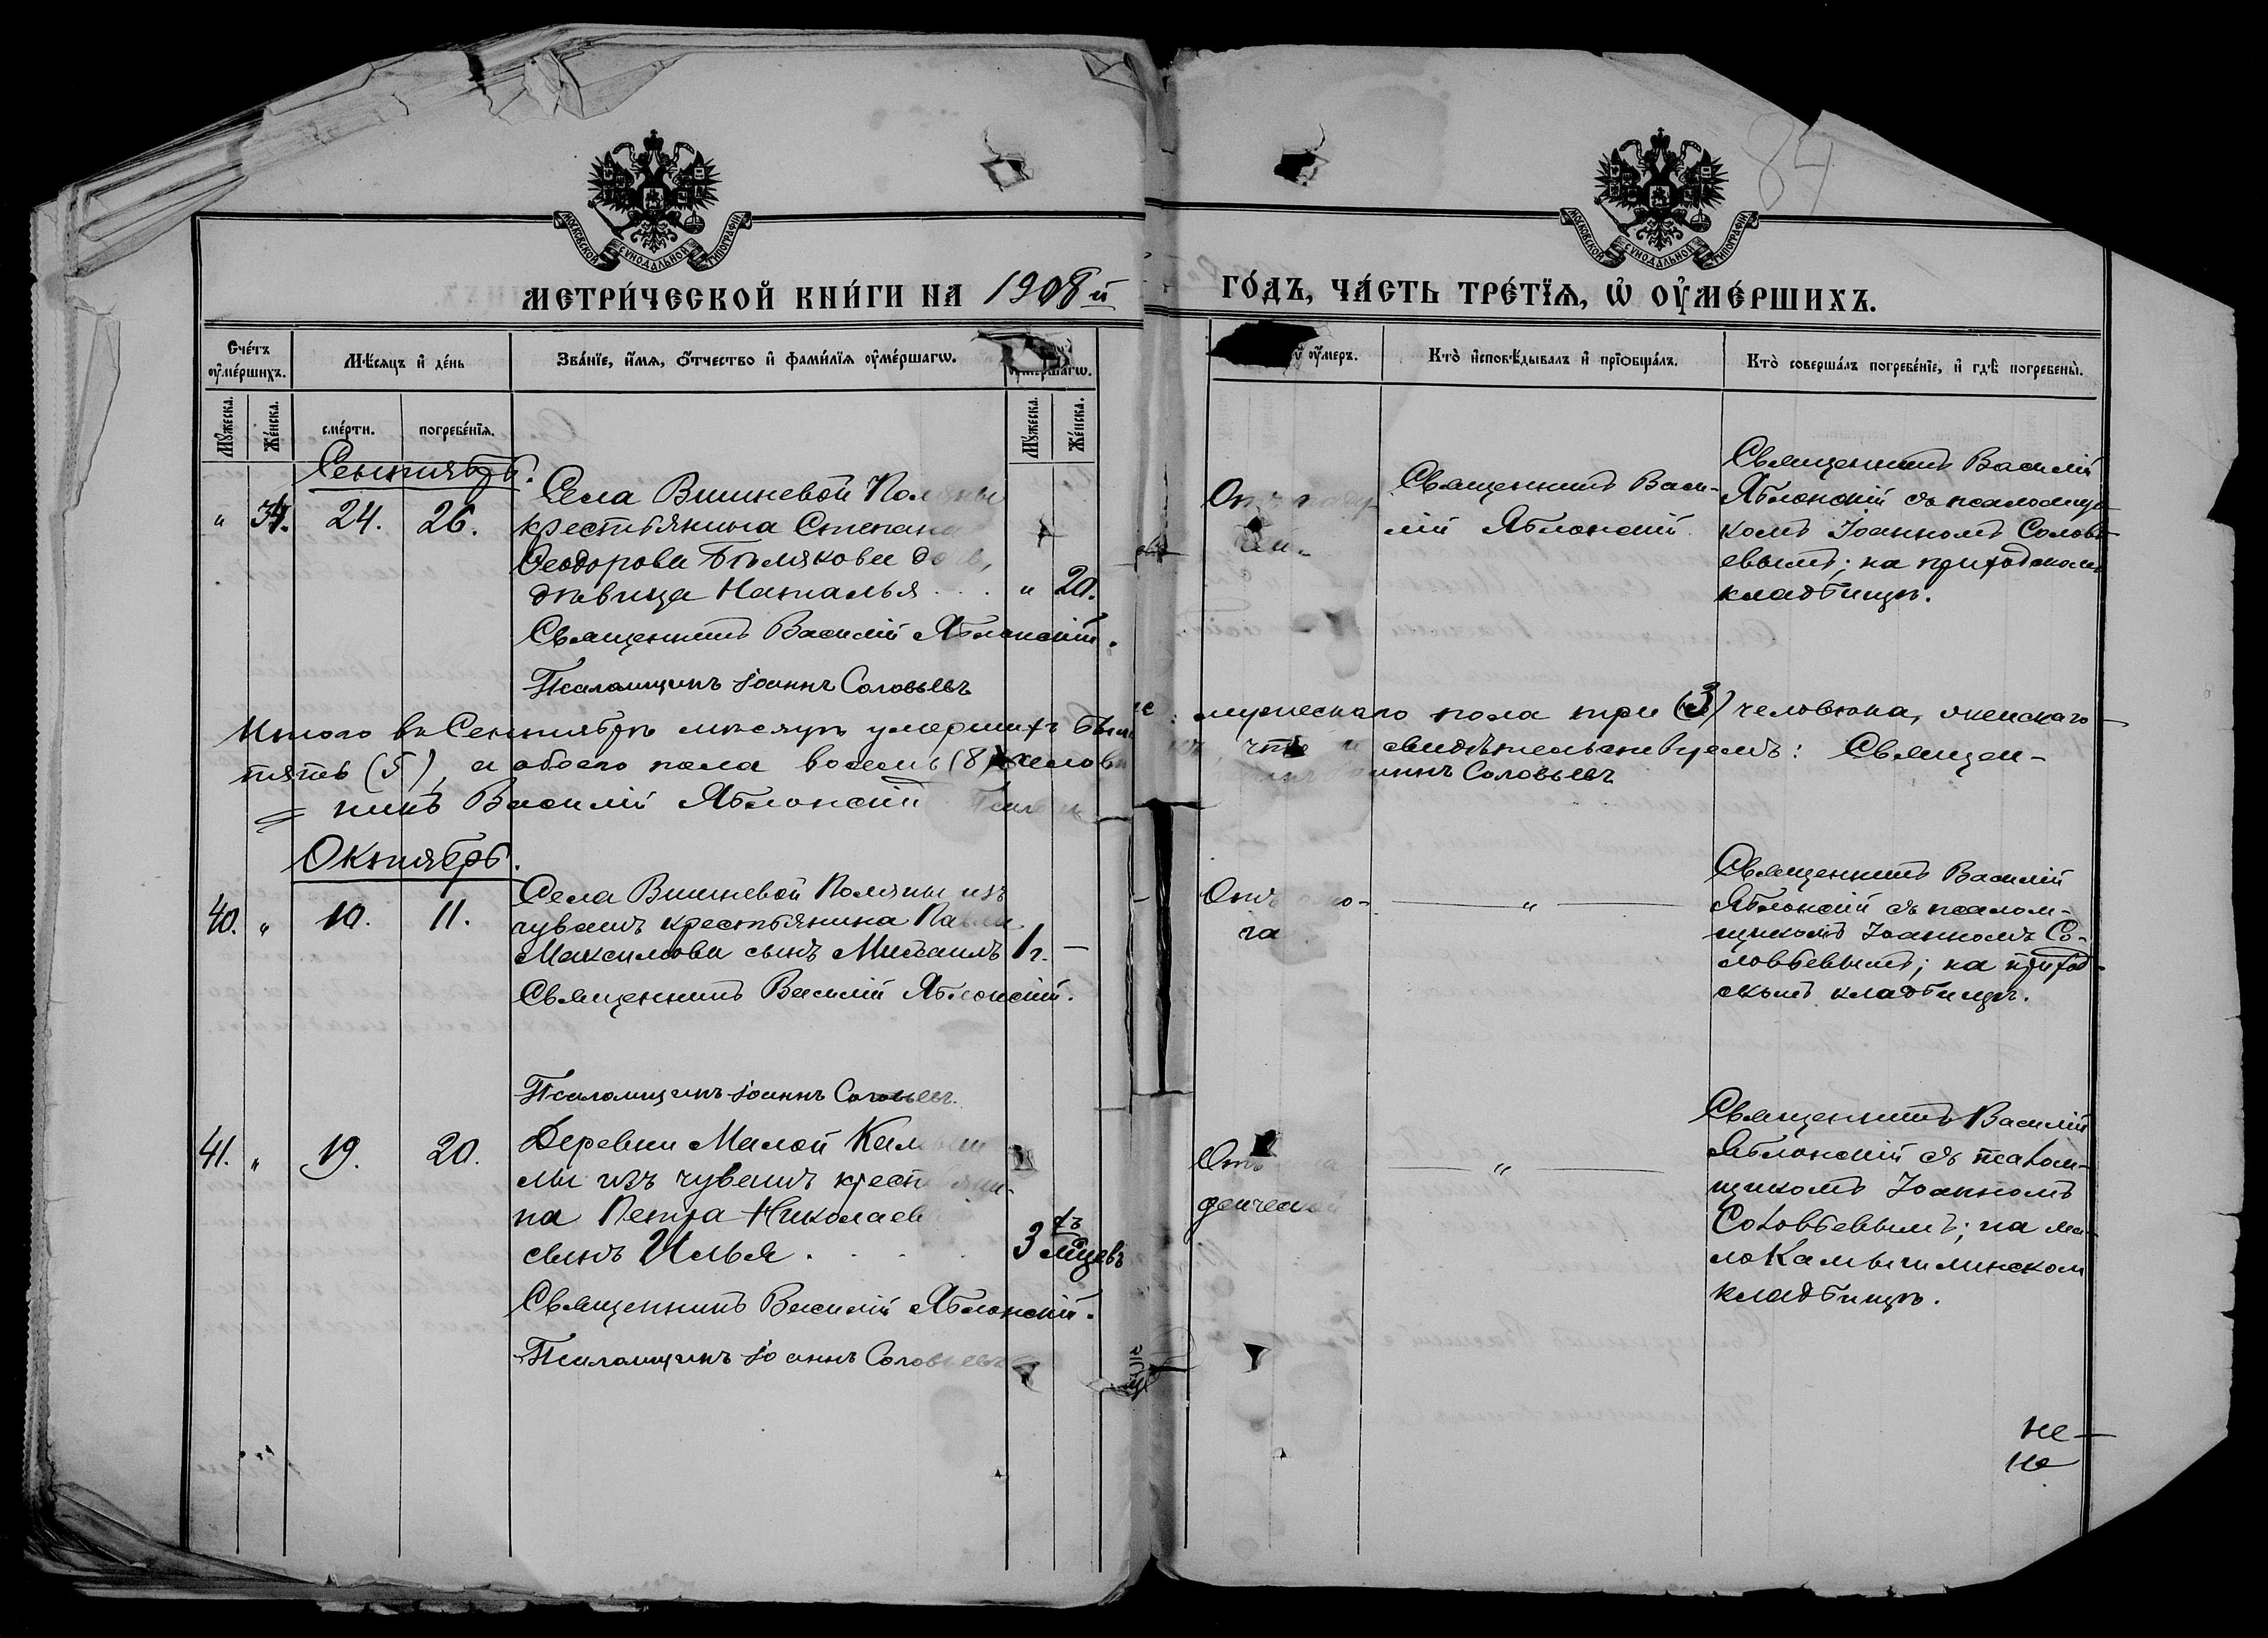 84
МОСКОВСКОЙ СѴНОДАЛЬНОЙ ТИПОГРАФІИ
МОСКОВСКОЙ СѴНОДАЛЬНОЙ ТИПОГРАФІИ
МЕТРИ́ЧЕСКОЙ КНИ́ГИ НА 1908 й
ГО́ДЪ, ЧА́СТЬ ТРЕ́ТІѦ, Ѡ҆ ОУ҆МЕ́РШИХЪ.
Сче́тъ оу҆ме́ршихъ.
Мѣ́сяцъ и҆ де́нь
Зва́нїе, и҆́мѧ, ѻ҆́тчество и҆ фами́лїѧ оу҆ме́ршагѡ.
оу҆ме́ршагѡ.
оу҆́меръ.
Кто̀ и҆сповѣ́дывалъ и҆ прїѡбща́лъ.
Кто̀ соверша́лъ погребе́нїе, и҆ гдѣ̀ погребены̀.
Мꙋ́жеска.
Же́нска.
сме́рти.
погребе́нїѧ.
Мꙋ́жеска.
Же́нска.
Сентябрь.
" 34. 24. 26.
Села Вишневой Поляны
крестьянина Степана
Ѳеодорова Бѣлякова
дѣвица Наталья . . . " 20.
Священникъ Василій Яблонскій.
Псаломщикъ Іоаннъ Соловьевъ
Священникъ Васи-
лій Яблонскій
Священникъ Василій
Яблонскій съ псаломщи-
комъ Іоанномъ Соловь-
евымъ; на приходскомъ
кладбищѣ.
Итого въ Сентябрѣ мѣсяцѣ умершихъ было мужескаго пола три (3) человѣка, женскаго
пять (5), а обоего пола восемь (8) человѣкъ, что и свидѣтельствуемъ: Священ-
никъ Василій Яблонскій
Іоаннъ Соловьевъ
Октябрь.
40. " 10. 11.
Села Вишневой Поляны изъ
чувашъ крестьянина Павла
Максимова сынъ Михаилъ 1 г. —
Священникъ Василій Яблонскій.
Псаломщикъ Іоаннъ Соловьевъ.
"
Священникъ Василій
Яблонскій съ псалом-
щикомъ Іоанномъ Со-
ловьевымъ; на приход-
скомъ кладбищѣ.
41. " 19. 20.
Деревни Малой Камыш
лы изъ чувашъ крестьяни-
на Петра Николаева
сынъ Илья . . . . 3 хъ мѣсцевъ
Священникъ Василій Яблонскій.
Псаломщикъ Іоаннъ Соловьевъ
"
Священникъ Василій
Яблонскій съ псалом-
щикомъ Іоанномъ
Соловьевымъ; на ма-
ло Камышлинскомъ
кладбищѣ.